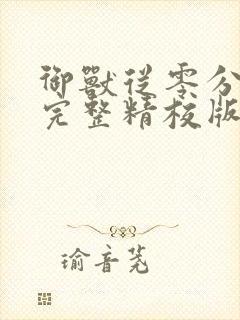 御獸從零分
完整精校版
瑜音茺